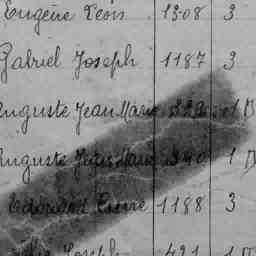 Eugène Léon 1308 3
Gabriel Joseph 1187 3
Auguste Jean Marie 339 1 D
Auguste Jean Marie 340 1 D
Edouard Pierre 1188 3
Joseph 421 1 D